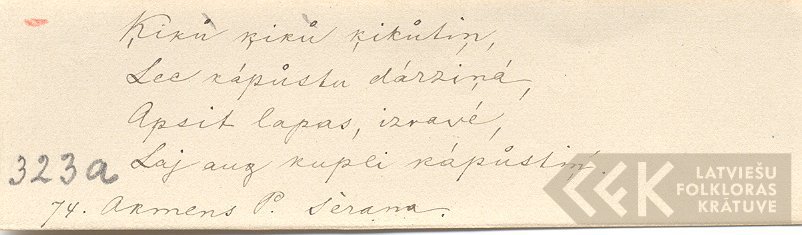 Ķiků ķiků ķikůtiņ,
Lec kápůstu dárziņá,
Apsit lapas, izravé,
Laj aug kupli kápůstiņ.
323a
74. Akmens P. Sērana.
LATVIEŠU
FOLKLORAS
KRĀTUVE
LFK